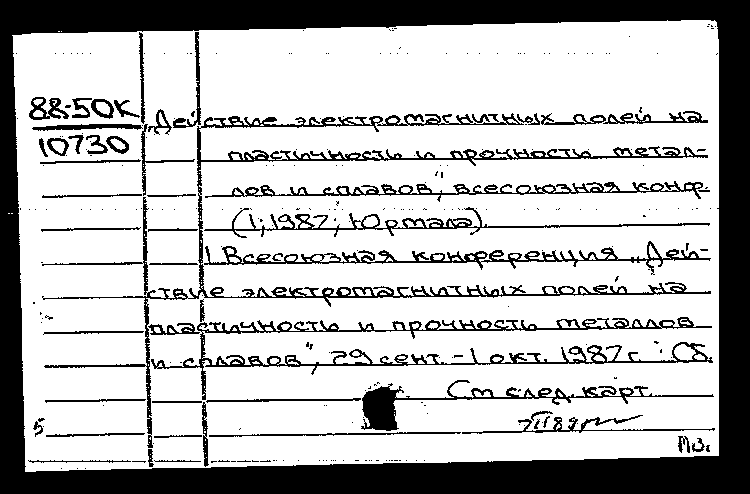 88-50К
10730
„Действие электромагнитных полей на
пластичность и прочность метал-
лов и сплавов", всесоюзная конф.
(1; 1987; Юрмала).
1 Всесоюзная конференция „Дей-
ствие электромагнитных полей на
пластичность и прочность металлов
и сплавов", 29 сент. - 1 окт. 1987 г. : Сб.
См след. карт.
5